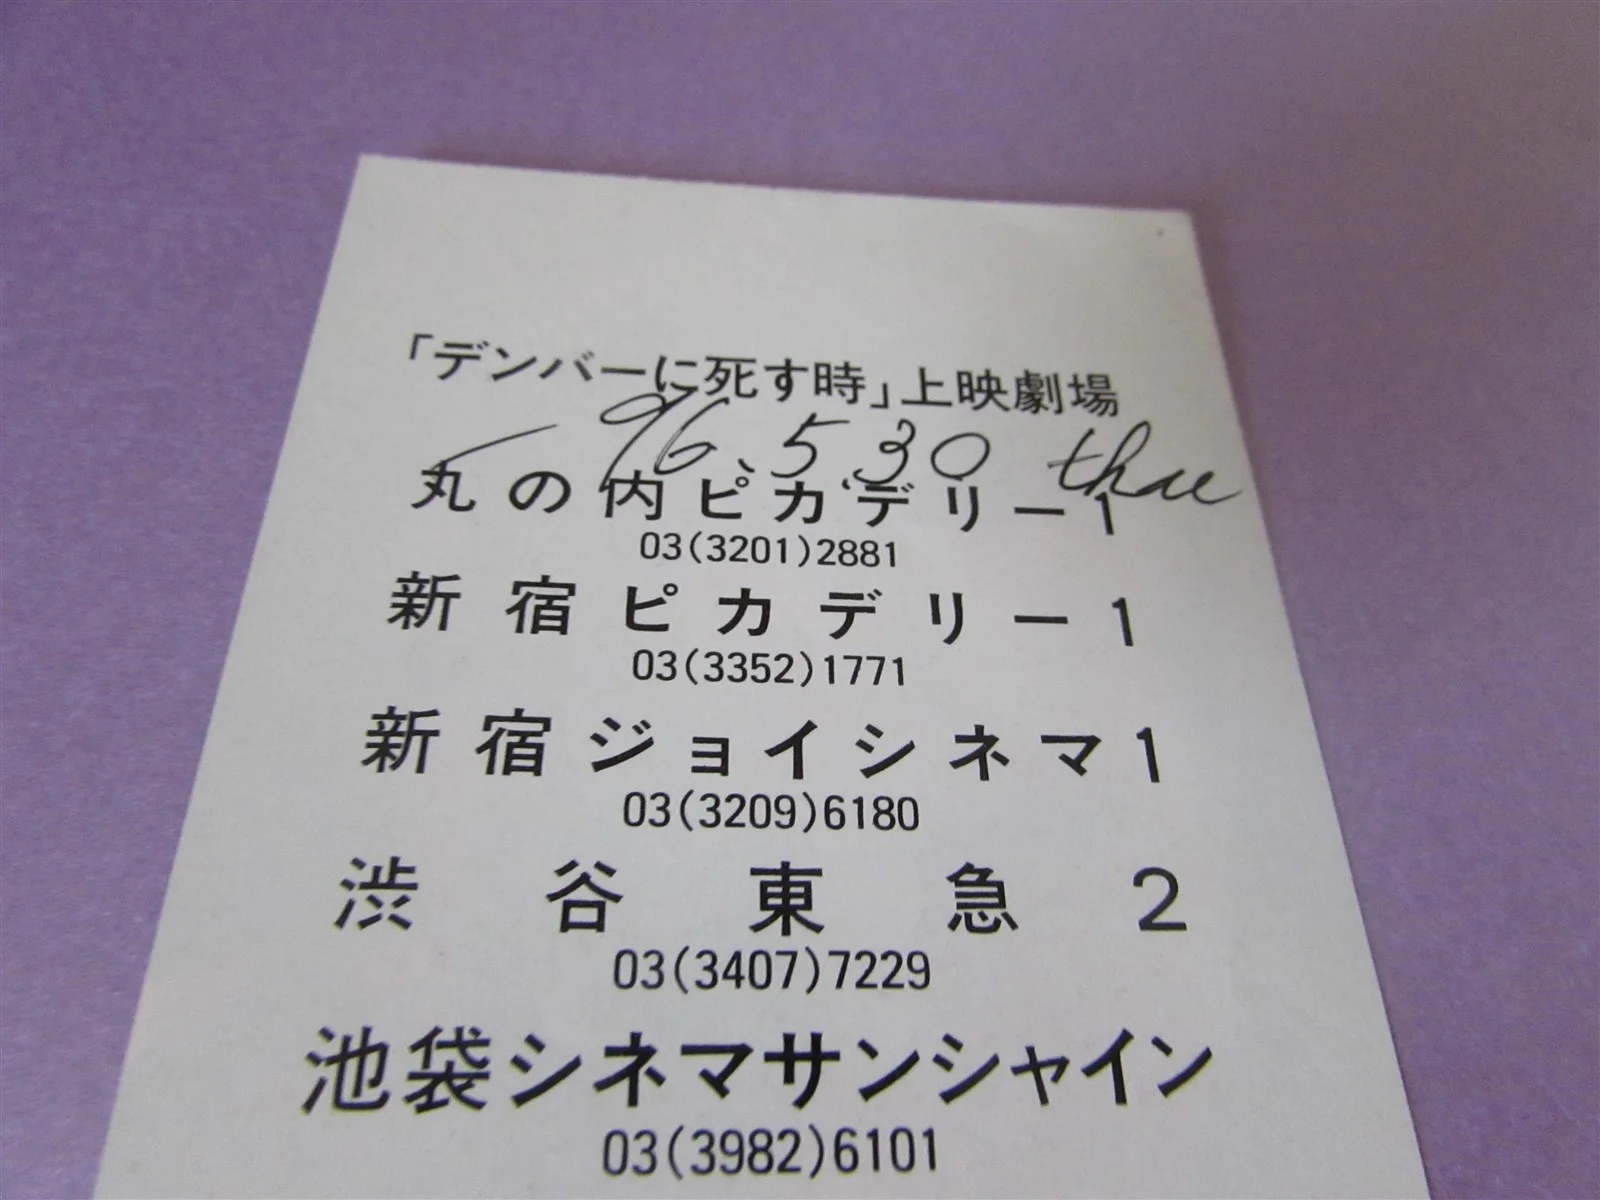 「デンバーに死す時」上映劇場
96.5.30 thu
丸の内ピカデリー1
03(3201)2881
新宿ピカデリー1
03(3352)1771
新宿ジョイシネマ1
03(3209)6180
渋谷東急2
03(3407)7229
池袋シネマサンシャイン
03(3982)6101